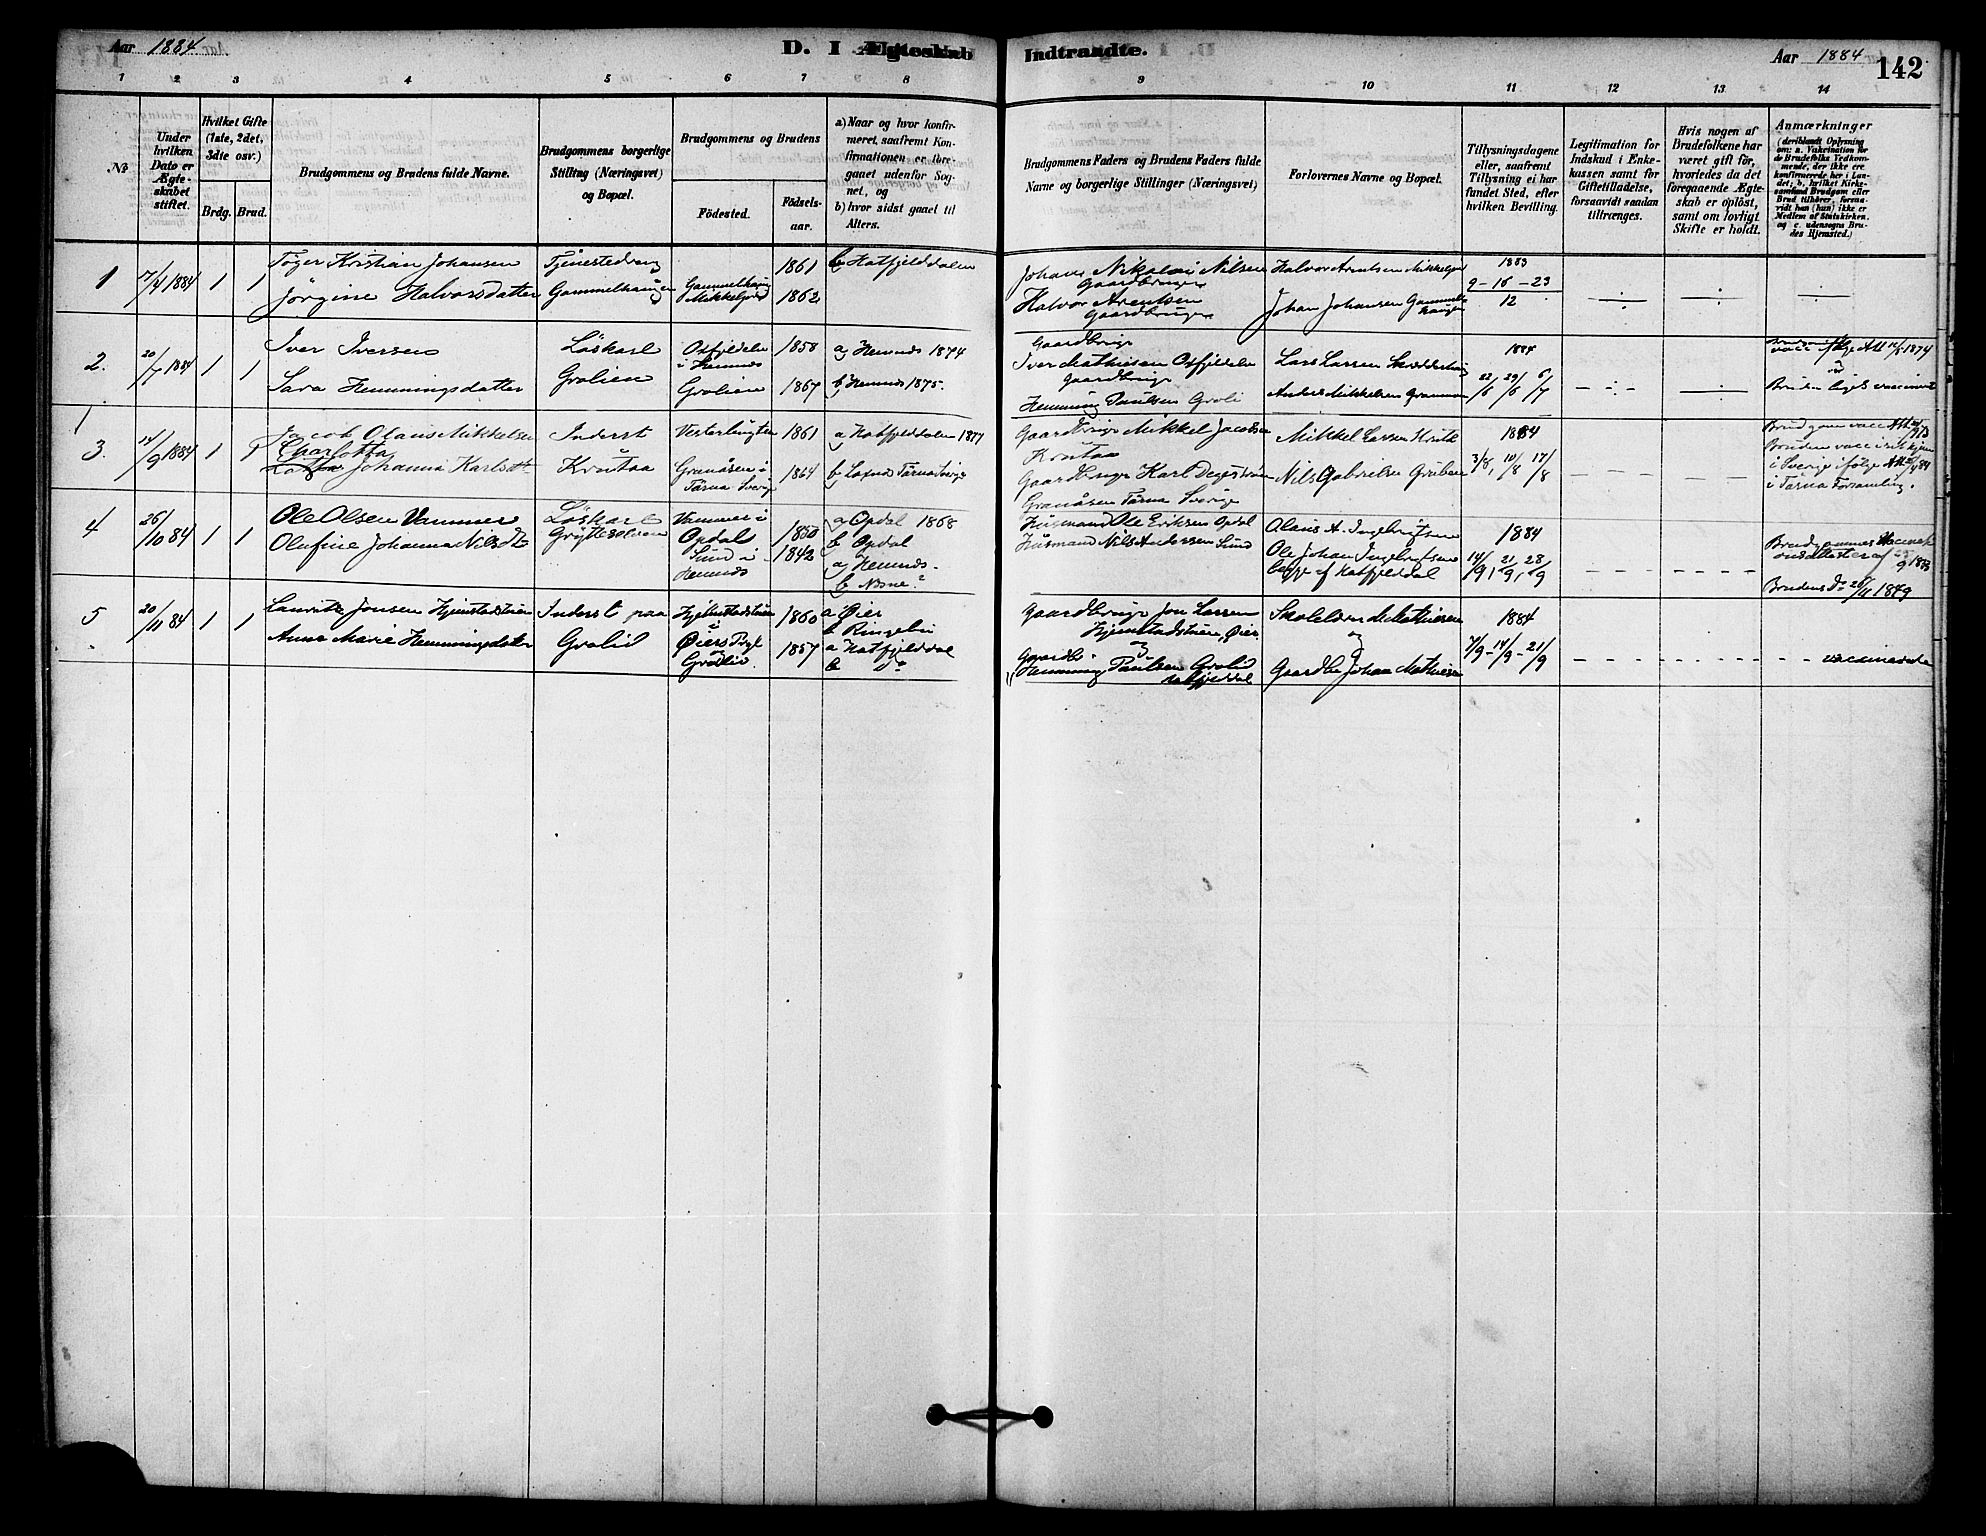 Aar 1884
D. I Ægteskab Indtraadte.
Aar 1884
142
1 2 3 4 5 6 7 8 9 10 11 12 13 14
№
Under hvilken Dato er Ægteskabet stiftet.
Hvilket Gifte (1ste, 2det, 3die osv.)
Brdg. Brud.
Brudgommens og Brudens fulde Navne.
Brudgommens borgerlige Stilling (Næringsvei) og Bopæl.
Brudgommens og Brudens
Fødested.
Fødselsaar.
a) Naar og hvor konfirmeret, saafremt Konfirmationen er foregaaet udenfor Sognet, og
b) hvor sidst gaaet til Alters.
Brudgommens Faders og Brudens Faders fulde Navne og borgerlige Stillinger (Næringsvei)
Forlovernes Navne og Bopæl.
Tillysningsdagene eller, saafremt Tillysning ei har fundet Sted, efter hvilken Bevilling.
Legitimation for Indskud i Enkekassen samt for Giftetilladelse, forsaavidt saadan tiltrænges.
Hvis nogen af Brudefolkene har været gift før, hvorledes da det foregaaende Ægteskab er opløst, samt om lovligt Skifte er holdt.
Anmærkninger
(deriblandt Oplysning om: a. Vakcination for de Brudefolks Vedkommende, der ikke ere konfirmerede her i Landet, b. hvilket Kirkesamfund Brudgom eller Brud tilhører, forsaavidt han (hun) ikke er Medlem af Statskirken, og c. udensogns Brudes Hjemsted.)
1
7/4 1884
1 1
Tøger Kristian Johansen
Jørgine Halvorsdatter
Tjenestedreng
Gammelhaugen
Gammelhaug
Mikkeljord
1861
1862
b Hatfjelddalen
Johan Nikolai Nilsen
Gaardbruger
Halvor Arentsen
Gaardbruger
Halvor Arentsen Mikkeljord
Johan Johansen Gammelhaugen
1883
9 - 16 - 23
12
2.
20/7 1884
1 1
Iver Iversen
Sara Hemmingsdatter
Løskarl
Grolien
Ostfjeldene
i Hemnes
Grolien
1858
1867
a Hemnes 1874
b Hemnes 1875.
Gaardbruger
Iver Mathisen Ostfjelden
Gaardbruger
Hemming Paulsen Groli
Lars Larsen
Anders Mikkelsen
1884
22/6 29/6 6/7
Bruden ligel. vaccineret
3
14/9 1884
1 1
Jacob Olaus Mikkelsen
Charlotta
Lotta Johanna Karlsdtr
Inderst
Krutaa
1861
Granåsen i
Tärna Sverig
1864
a Hatfjelddalen 1877
Gaardbruger Mikkel Jacobsen
Krutaa
Gaardbruger Karl
Granåsen Tärna Sverige
Mikkel Larsen Krutå
Nils Gabrielsen Gruben
1884
3/8, 10/8 17/8
Brudgom vacc.
i Sverige ifølge Att.
i Tärna Forsamling.
4
26/10 84
1 1
Ole Olsen Vammer
Olufine Johanna Nilsdtr
Løskarl
Vammer i
Opdal
Sund i
Hemnes
1850
1842
a Opdal 1868
b Opdal
a Hemnes
b Nesne?
Husmand Ole Eriksen Opdal
Husmand Nils Andersen Sund
Olaus A. Ingebrigtsen
Ole Johan Ingebrigtsen
begge af Hatfjelddal
1884
14/9, 21/9, 28/9
Brudens Do 26/11 1849
5
20/11 84
1 1
Lauritz Jonsen Hjemstadstuen
Anne Marie Hemmingsdatter
Inderst paa
Grolid
Øiers Prgl
Grolid.
1860
1857
a Øier
b Ringebu
a Hatfjelddal
b Do
Gaardbruger Jon Larsen
Hjemstadstuen, Øier
og
Gaardbr
Hemming Paulsen Grolid
Hatfjelddal
Skolelærer Mathiesen
og
Gaardbr Johan Mathiesen
1884
7/9 - 14/9 - 21/9
vaccinerede